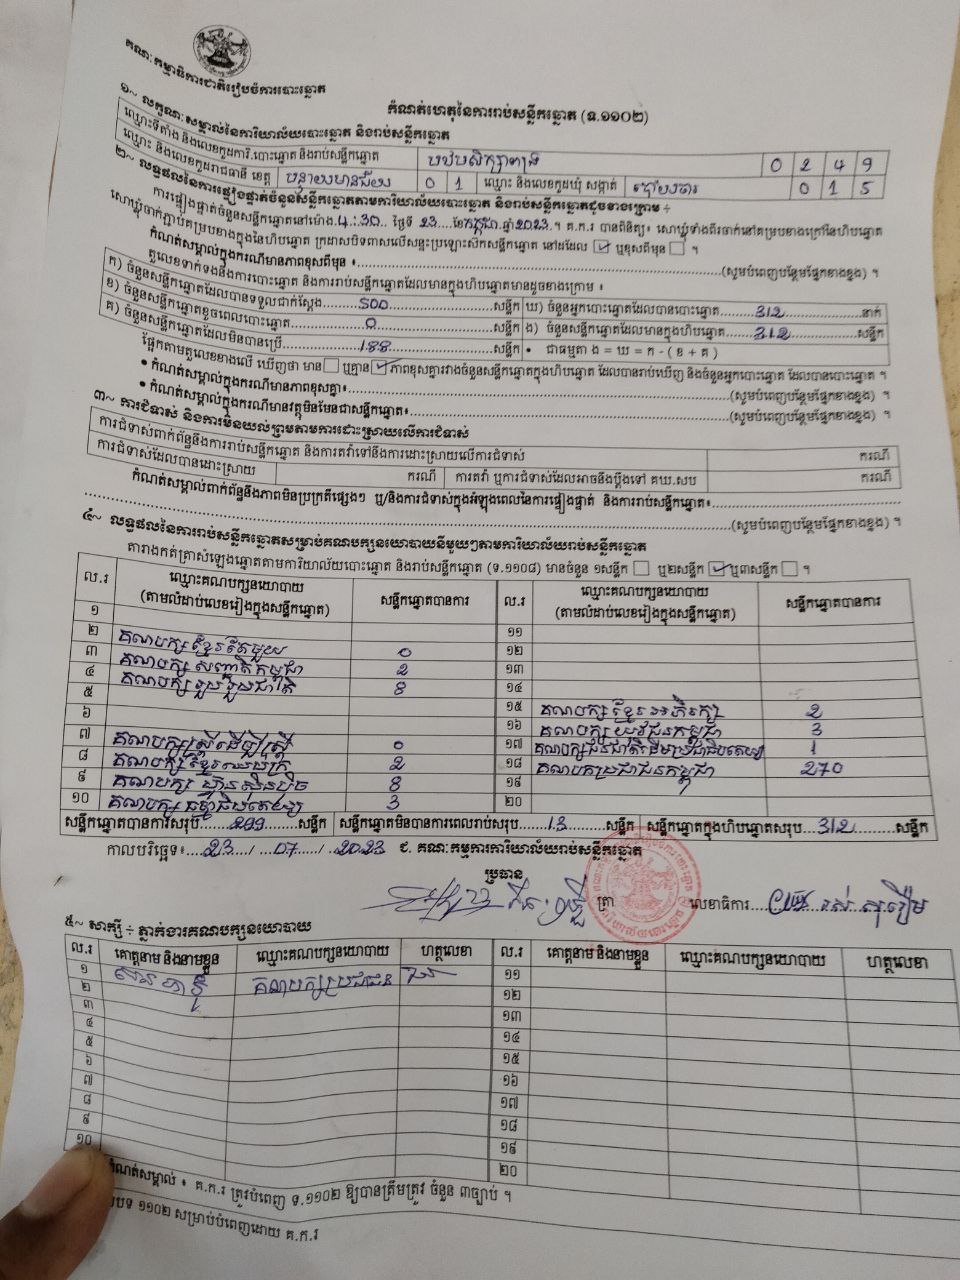 គណៈកម្មាធិការជាតិរៀបចំការបោះឆ្នោត
កំណត់ហេតុនៃការរាប់សន្លឹកឆ្នោត (ទ.១១០២)
១~ លក្ខណៈសម្គាល់នៃការិយាល័យបោះឆ្នោត និងរាប់សន្លឹកឆ្នោត
ឈ្មោះទីតាំង និងលេខកូដការិ.បោះឆ្នោត និងរាប់សន្លឹកឆ្នោត 0 2 4 9
ឈ្មោះ និងលេខកូដរាជធានី ខេត្ត បន្ទាយមានជ័យ 0 1 ឈ្មោះ និងលេខកូដឃុំ សង្កាត់ 0 1 5
២~ លទ្ធផលនៃការផ្ទៀងផ្ទាត់ចំនួនសន្លឹកឆ្នោតតាមការិយាល័យបោះឆ្នោត និងរាប់សន្លឹកឆ្នោតដូចខាងក្រោម ÷
ការផ្ទៀងផ្ទាត់ចំនួនសន្លឹកឆ្នោតនៅម៉ោង 4:30 ថ្ងៃទី 23 ខែ កក្កដា ឆ្នាំ 2023 ។ គ.ក.រ បានពិនិត្យ៖ សោឃ្លុំទាំងពីរចាក់នៅគម្របខាងក្រៅនៃហិបឆ្នោត
សោឃ្លុំចាក់ភ្ជាប់គម្របខាងក្នុងនៃហិបឆ្នោត ក្រដាសបិទពាសលើសន្ទះប្រឡោះសិកសន្លឹកឆ្នោត នៅដដែល ✓ ឬខុសពីមុន ។
កំណត់សម្គាល់ក្នុងករណីមានភាពខុសពីមុន ៖ (សូមបំពេញបន្ថែមផ្នែកខាងខ្នង) ។
តួលេខទាក់ទងនឹងការបោះឆ្នោត និងការរាប់សន្លឹកឆ្នោតដែលមានក្នុងហិបឆ្នោតមានដូចខាងក្រោម ៖
ក) ចំនួនសន្លឹកឆ្នោតដែលបានទទួលជាក់ស្តែង 500 សន្លឹក ឃ) ចំនួនអ្នកបោះឆ្នោតដែលបានបោះឆ្នោត 312 នាក់
ខ) ចំនួនសន្លឹកឆ្នោតខូចពេលបោះឆ្នោត 0 សន្លឹក ង) ចំនួនសន្លឹកឆ្នោតដែលមានក្នុងហិបឆ្នោត 312 សន្លឹក
គ) ចំនួនសន្លឹកឆ្នោតដែលមិនបានប្រើ 188 សន្លឹក • ជាធម្មតា ង = ឃ = ក - ( ខ + គ )
ផ្អែកតាមតួលេខខាងលើ ឃើញថា មាន ឬគ្មាន ✓ ភាពខុសគ្នារវាងចំនួនសន្លឹកឆ្នោតក្នុងហិបឆ្នោត ដែលបានរាប់ឃើញ និងចំនួនអ្នកបោះឆ្នោត ដែលបានបោះឆ្នោត ។
• កំណត់សម្គាល់ក្នុងករណីមានភាពខុសគ្នា៖ (សូមបំពេញបន្ថែមផ្នែកខាងខ្នង) ។
• កំណត់សម្គាល់ក្នុងករណីមានវត្ថុមិនមែនជាសន្លឹកឆ្នោត៖ (សូមបំពេញបន្ថែមផ្នែកខាងខ្នង) ។
៣~ ការជំទាស់ និងការមិនយល់ព្រមតាមការដោះស្រាយលើការជំទាស់
ការជំទាស់ពាក់ព័ន្ធនឹងការរាប់សន្លឹកឆ្នោត និងការតវ៉ាទៅនឹងការដោះស្រាយលើការជំទាស់ ករណី
ការជំទាស់ដែលបានដោះស្រាយ ករណី ការតវ៉ា ឬការជំទាស់ដែលអាចនឹងប្តឹងទៅ គឃ.សប ករណី
កំណត់សម្គាល់ពាក់ព័ន្ធនឹងភាពមិនប្រក្រតីផ្សេងៗ ឬ/និងការជំទាស់ក្នុងអំឡុងពេលនៃការផ្ទៀងផ្ទាត់ និងការរាប់សន្លឹកឆ្នោត៖
(សូមបំពេញបន្ថែមផ្នែកខាងខ្នង) ។
៤~ លទ្ធផលនៃការរាប់សន្លឹកឆ្នោតសម្រាប់គណបក្សនយោបាយនីមួយៗតាមការិយាល័យរាប់សន្លឹកឆ្នោត
តារាងកត់ត្រាសំឡេងឆ្នោតតាមការិយាល័យបោះឆ្នោត និងរាប់សន្លឹកឆ្នោត (ទ.១១០៨) មានចំនួន ១សន្លឹក ឬ២សន្លឹក ✓ ឬ៣សន្លឹក ។
ល.រ ឈ្មោះគណបក្សនយោបាយ សន្លឹកឆ្នោតបានការ ល.រ ឈ្មោះគណបក្សនយោបាយ សន្លឹកឆ្នោតបានការ
(តាមលំដាប់លេខរៀងក្នុងសន្លឹកឆ្នោត) (តាមលំដាប់លេខរៀងក្នុងសន្លឹកឆ្នោត)
១ ១១
២ គណបក្សខ្មែរតែមួយ 0 ១២
៣ គណបក្ស សញ្ជាតិកម្ពុជា 2 ១៣
៤ គណបក្ស រួបរួមជាតិ 8 ១៤
៥ ១៥ គណបក្សខ្មែរអភិរក្ស 2
៦ ១៦ គណបក្ស យុវជនកម្ពុជា 3
៧ គណបក្សស្ត្រីដើម្បីស្ត្រី 0 ១៧ គណបក្សជនជាតិដើមប្រជាធិបតេយ្យ 1
៨ គណបក្សខ្មែរឈប់ក្រ 2 ១៨ គណបក្សប្រជាជនកម្ពុជា 270
៩ គណបក្ស ហ្វ៊ុនស៊ិនប៉ិច 8 ១៩
១០ គណបក្ស ធម្មាធិបតេយ្យ 3 ២០
សន្លឹកឆ្នោតបានការសរុប 299 សន្លឹក សន្លឹកឆ្នោតមិនបានការពេលរាប់សរុប 13 សន្លឹក សន្លឹកឆ្នោតក្នុងហិបឆ្នោតសរុប 312 សន្លឹក
កាលបរិច្ឆេទ៖ 23 / 07 / 2023 ជ. គណៈកម្មការការិយាល័យរាប់សន្លឹកឆ្នោត
ប្រធាន
ត្រា លេខាធិការ
៥~ សាក្សី ÷ ភ្នាក់ងារគណបក្សនយោបាយ
ល.រ គោត្តនាម និងនាមខ្លួន ឈ្មោះគណបក្សនយោបាយ ហត្ថលេខា ល.រ គោត្តនាម និងនាមខ្លួន ឈ្មោះគណបក្សនយោបាយ ហត្ថលេខា
១ គណបក្សប្រជាជន ១១
២ ១២
៣ ១៣
៤ ១៤
៥ ១៥
៦ ១៦
៧ ១៧
៨ ១៨
៩ ១៩
១០ ២០
កំណត់សម្គាល់ ៖ គ.ក.រ ត្រូវបំពេញ ទ.១១០២ ឱ្យបានត្រឹមត្រូវ ចំនួន ៣ច្បាប់ ។
១១០២ សម្រាប់បំពេញដោយ គ.ក.រ